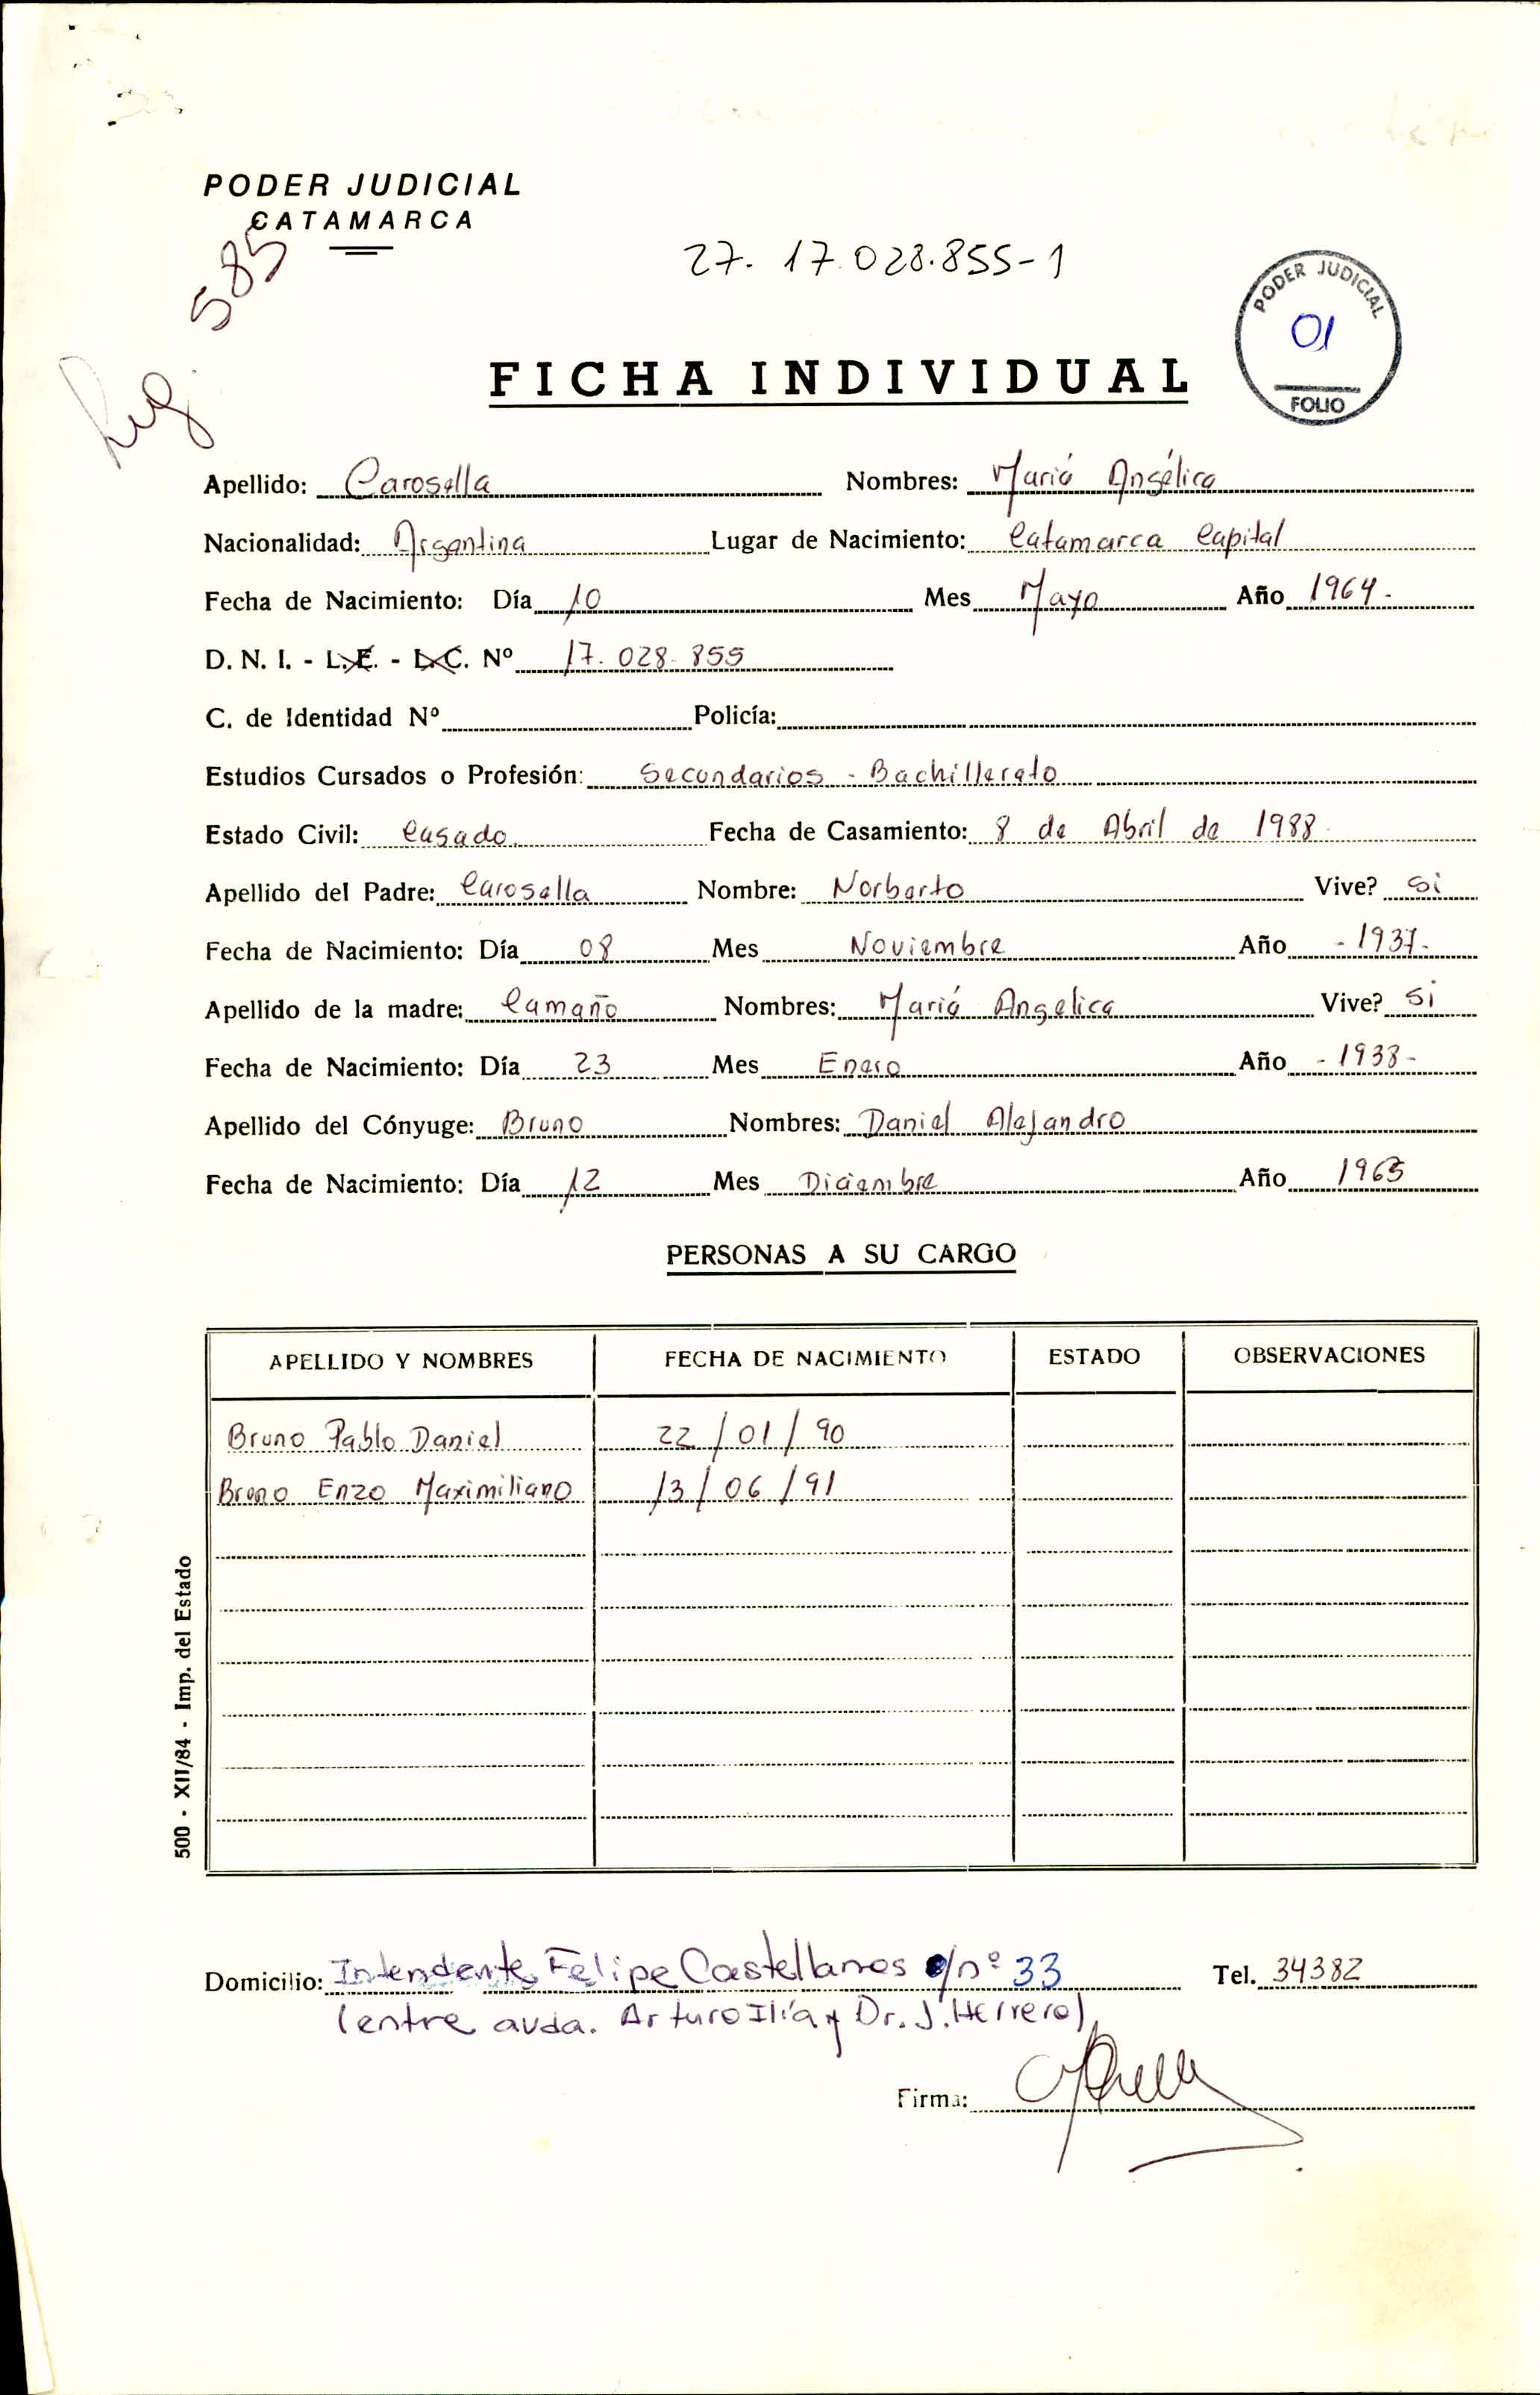 PODER JUDICIAL
CATAMARCA
Leg. 585
27. 17.028.855-1
PODER JUDICIAL
01
FOLIO
FICHA INDIVIDUAL
Apellido: Carosella Nombres: Mariá Angélica
Nacionalidad: Argentina Lugar de Nacimiento: Catamarca Capital
Fecha de Nacimiento: Día 10 Mes Mayo Año 1964.
D. N. I. - L. E. - L. C. Nº 17. 028. 855
C. de Identidad Nº Policía:
Estudios Cursados o Profesión: Secundarios - Bachillerato
Estado Civil: Casado. Fecha de Casamiento: 8 de Abril de 1988.
Apellido del Padre: Carosella Nombre: Norberto Vive? Si
Fecha de Nacimiento: Día 08 Mes Noviembre Año - 1937-
Apellido de la madre: Camaño Nombres: Mariá Angelica Vive? Si
Fecha de Nacimiento: Día 23 Mes Enero Año - 1938-
Apellido del Cónyuge: Bruno Nombres: Daniel Alejandro
Fecha de Nacimiento: Día 12 Mes Diciembre Año
PERSONAS A SU CARGO
APELLIDO Y NOMBRES FECHA DE NACIMIENTO ESTADO OBSERVACIONES
Bruno Pablo Daniel 22/01/90
Bruno Enzo Maximiliano 13/06/91
500 - XII/84 - Imp. del Estado
Domicilio: Intendente Felipe Castellanos nº 33 Tel. 34382
(entre avda. Arturo Ilía y Dr. J. Herrera)
Firma: